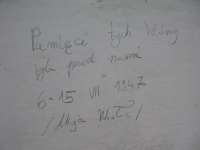 Pamięci tych którzy
byli przed nami
6-15 VII 1947